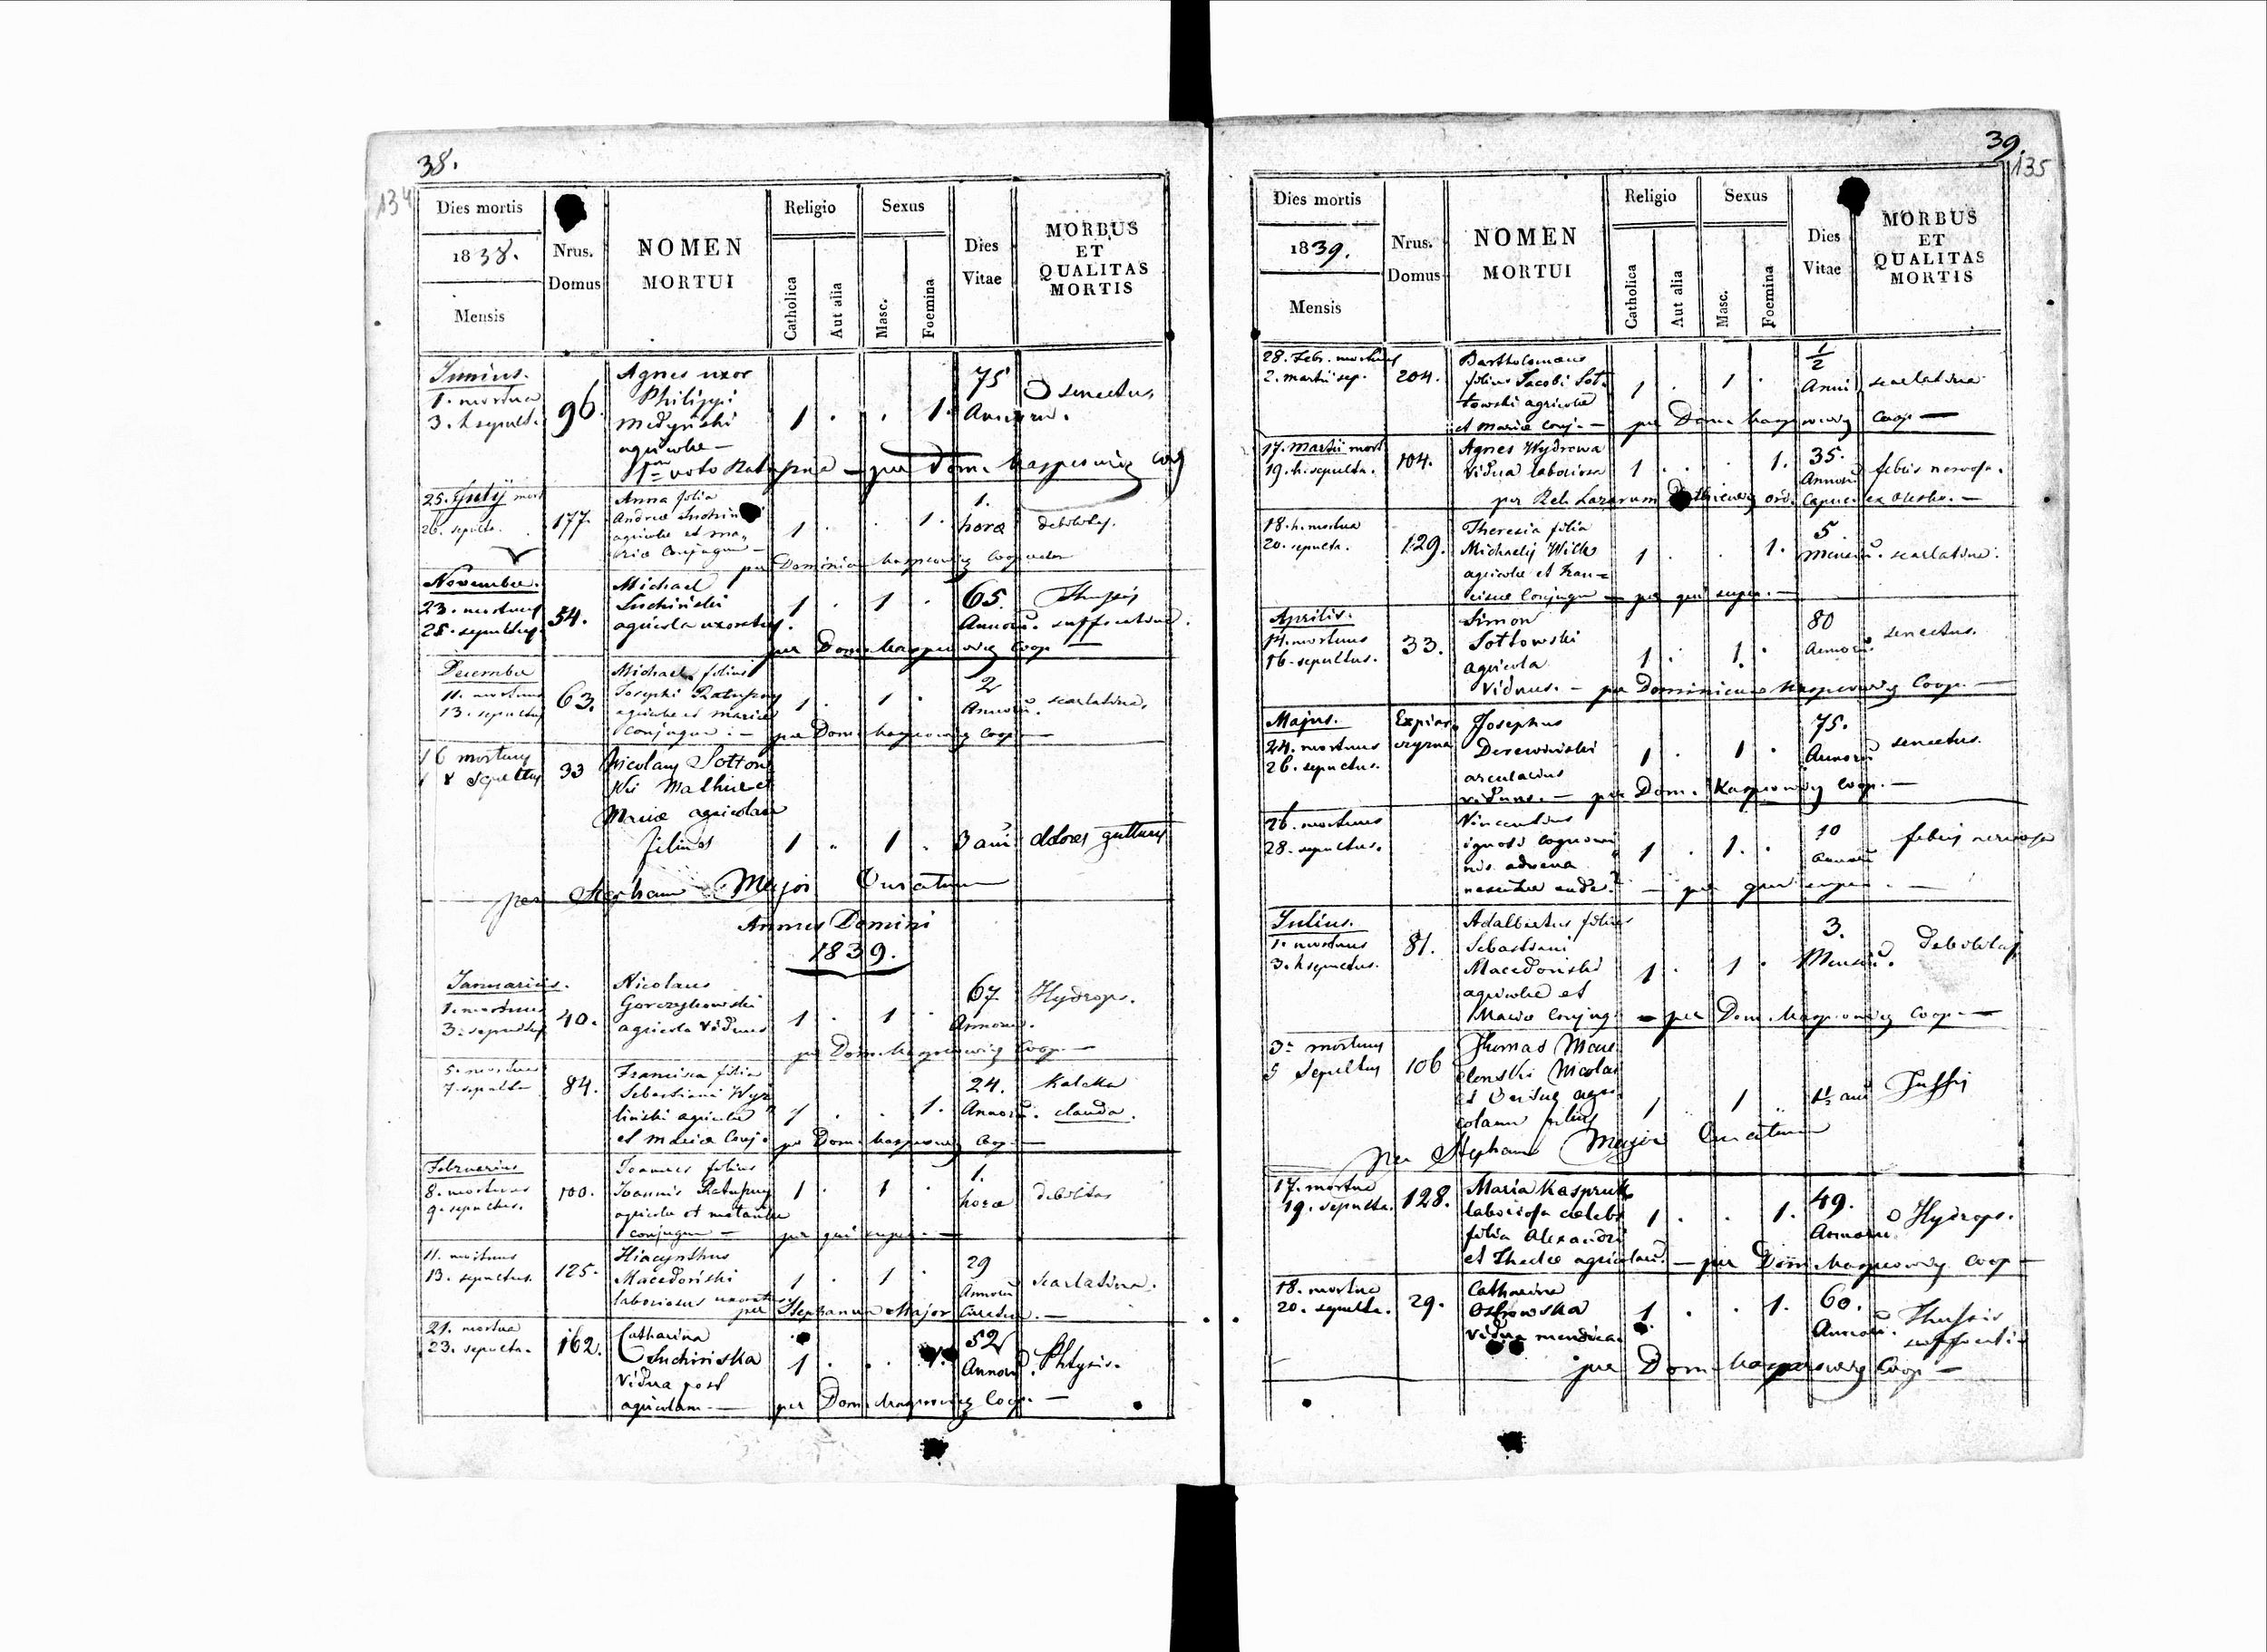 38.
134
Dies mortis
1838.
Mensis
Nrus.
Domus
NOMEN
MORTUI
Religio
Catholica
Aut alia
Sexus
Masc.
Foemina
Dies
Vitae
MORBUS
ET
QUALITAS
MORTIS
Junius.
1. mortua
3. h sepult.
96.
Agnes uxor
Philippi
Medyński
agricolae —
1 . . 1.
75
Annoru.
senectus
voto — per Dom. Kasperowicz
25. Julij mort
26. sepulta.
177.
Anna filia
Andreae
agricolae et Ma-
riae Conjugum —
1 . . 1.
1.
hora
debilitas.
per Dominicum Kasperowicz Cooperator
November.
23. mortuus
25. sepultus.
54.
Michael
Suchiński
agricola uxoratus.
1 . 1 .
65.
Annoru.
Thussis
suffocativa.
per Dom. Kasperowicz Coop —
December
11. mortuus
13. sepultus
63.
Michael filius
Josephi Ratuszny
agricolae et Mariae
Conjugum. —
1 . 1 .
2
Annoru.
scarlatina.
per Dom. Kasperowicz Coop —
16 mortuus
18 sepultus
33
Nicolaus Sotow
ski Mathiae et
Mariae agricolarum
filius
1 " 1 .
3 ann
dolores gutturis
per Stephanum Major Curatum
Annus Domini
1839.
Januarius.
1. mortuus
3. sepultus
40.
Nicolaus
Gorczykowski
agricola viduus
1 . 1 .
67
Annoru.
Hydrops.
per Dom. Kasperowicz Coop. —
5. mortua
7. sepulta
84.
Francisca filia
Sebastiani
agricolae
et Mariae Conj.
1 . . 1.
24.
Annoru.
Kaleka
clauda.
per Dom. Kasperowicz Coop. —
Februarius
8. mortuus
9. sepultus.
100.
Joannes filius
Joannis Ratuszny
agricolae et Melaniae
conjugum —
1 . 1 .
1.
hora
debilitas
per qui supra. —
11. mortuus
13. sepultus.
125.
Hiacynthus
Macedoński
laboriosus uxoratus
1 . 1 .
29
Annoru
scarlatina.
per Stephanum Major Curatum. —
21. mortua
23. sepulta.
162.
Catharina
Suchińska
vidua post
agricolam. —
1 . . 1.
52
Annoru.
Phtysis.
per Dom. Kasperowicz Coop. —
39.
135
Dies mortis
1839.
Mensis
Nrus.
Domus
NOMEN
MORTUI
Religio
Catholica
Aut alia
Sexus
Masc.
Foemina
Dies
Vitae
MORBUS
ET
QUALITAS
MORTIS
28. Febr. mortuus
2. martii sep.
204.
Bartholomaeus
filius Jacobi Sot-
towski agricolae
et Mariae Conj. —
1 . 1 .
1/2
Anni
scarlatina
per Dom. Kasperowicz Coop —
17. Martii mort
19. h. sepulta.
104.
Agnes Wydrowa
vidua laboriosa
1 . . 1.
35.
Annoru
febris nervosa.
per Rel. Lazarum ord. Capuc. ex Olesko. —
18. h. mortua
20. sepulta.
129.
Theresia filia
Michaelis Wilk
agricolae et Fran-
ciscae Conjugum — per qui supra. —
1 . . 1.
5
Mensiu.
scarlatina.
Aprilis.
14. mortuus
16. sepultus.
33.
Simon
Sottowski
agricola
viduus. — per Dominicum Kasperowicz Coop. —
1 . 1. .
80
Annoru.
senectus.
Majus.
24. mortuus
26. sepultus.
Josephus
Derewiński
viduus. — per Dom. Kasperowicz Coop. —
1 . 1 .
75.
Annoru
senectus.
26. mortuus
28. sepultus.
Vincentius
ignoti cognomi
nis advena
nescitur unde? — per qui supra. —
1 . 1. .
10
Annoru
febris nervosa
Julius.
1. mortuus
3. h sepultus.
81.
Adalbertus filius
Sebastiani
Macedoński
agricolae et
Mariae Conjug. — per Dom. Kasperowicz Coop. —
1 . 1 .
3.
Mensiu.
debilitas
3. mortuus
5 Sepultus
106
Thomas
Nicolai
agri
colarum filius
1 " 1 "
Tussis
per Stephanum Major Curatum
17. mortua
19. sepulta.
128.
Maria Kaspruk
laboriosa caelebs
filia Alexandri
et Theclae agricolaru. — per Dom. Kasperowicz Coop —
1 . . 1.
49.
Annoru.
Hydrops.
18. mortua
20. sepulta.
29.
Catharina
Ostrowska
vidua mendica.
1 . . 1.
60.
Annoru.
Thussis
suffocati-
per Dom. Kasperowicz Coop —